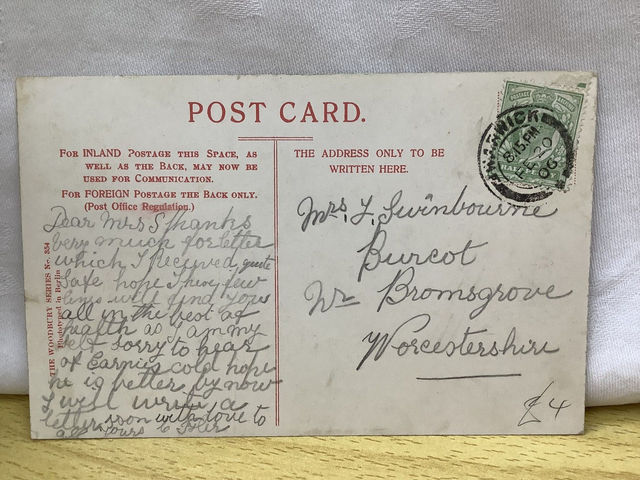 POST CARD.
FOR INLAND POSTAGE THIS SPACE, AS
WELL AS THE BACK, MAY NOW BE
USED FOR COMMUNICATION.
FOR FOREIGN POSTAGE THE BACK ONLY.
(Post Office Regulation.)
THE ADDRESS ONLY TO BE
WRITTEN HERE.
THE WOODBURY SERIES No. 854
Photographed in Berlin
Dear Mrs S Thanks
very much for letter
which I received quite
safe hope these few
lines will find yous
all in the best of
health as I am my
self sorry to hear
of Earnies cold hope
he is better by now
I will write a
letter soon with love to
all yours
Mrs. F. Swinbourne
Burcot
Nr Bromsgrove
Worcestershire
£4
WARWICK
8.15 PM
20
06